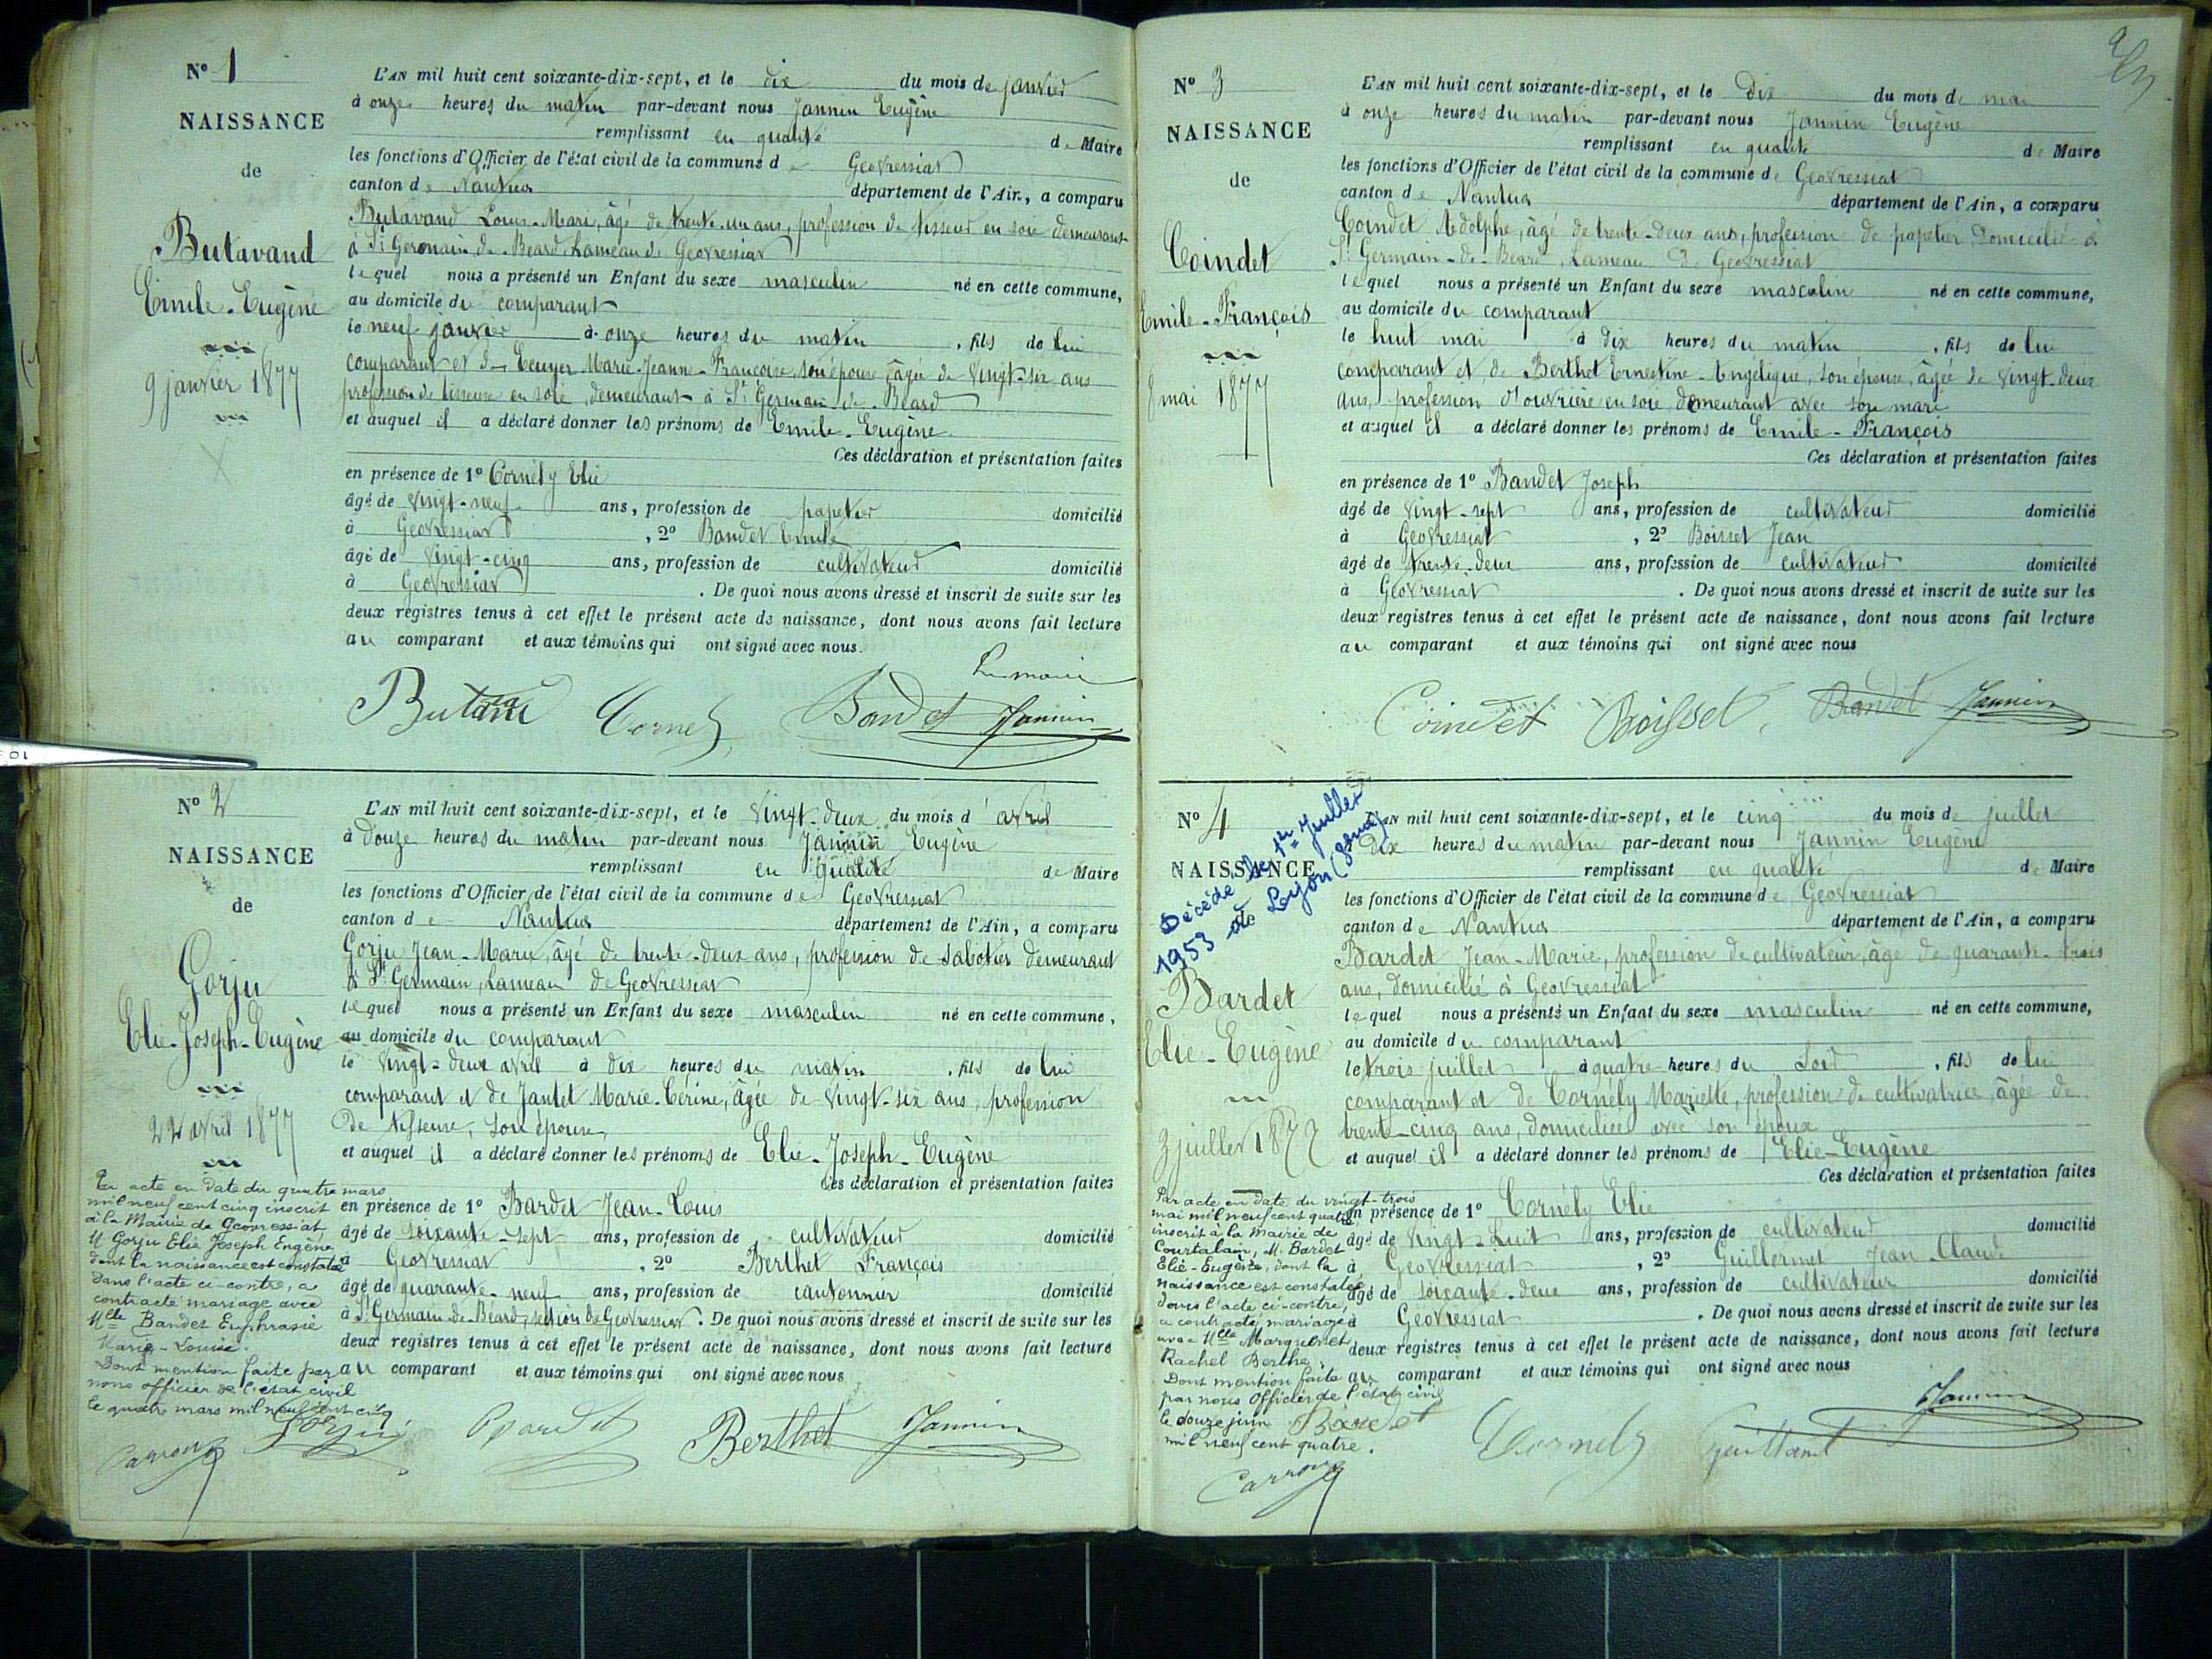 N° 1
NAISSANCE
de
Butavand
Emile-Eugène
9 janvier 1877
L'AN mil huit cent soixante-dix-sept, et le dix du mois de janvier
à onze heures du matin par-devant nous Jannin Eugène
remplissant en qualité de Maire
les fonctions d'Officier de l'état civil de la commune de Geovressiat
canton de Nantua département de l'Ain, a comparu
Butavand Louis-Marie, âgé de trente-un ans, profession de tisseur en soie demeurant
à St Germain-de-Béard, hameau de Geovressiat
lequel nous a présenté un Enfant du sexe masculin né en cette commune,
au domicile du comparant
le neuf janvier à onze heures du matin, fils de lui
comparant et de Marie-Jeanne-Françoise, son épouse, âgée de vingt-six ans
profession de tisseuse en soie, demeurant à St Germain-de-Béard
et auquel il a déclaré donner les prénoms de Emile-Eugène
Ces déclaration et présentation faites
en présence de 1° Cornély Elie
âgé de vingt-neuf ans, profession de papetier domicilié
à Geovressiat, 2° Bandet Emile
âgé de vingt-cinq ans, profession de cultivateur domicilié
à Geovressiat. De quoi nous avons dressé et inscrit de suite sur les
deux registres tenus à cet effet le présent acte de naissance, dont nous avons fait lecture
au comparant et aux témoins qui ont signé avec nous.
Le maire
Cornély Bandet Jannin
N° 2
NAISSANCE
de
Gorju
Elie-Joseph-Eugène
22 avril 1877
L'AN mil huit cent soixante-dix-sept, et le vingt-deux du mois d'avril
à douze heures du matin par-devant nous Jannin Eugène
remplissant en qualité de Maire
les fonctions d'Officier de l'état civil de la commune de Geovressiat
canton de Nantua département de l'Ain, a comparu
Gorju Jean-Marie, âgé de trente-deux ans, profession de sabotier demeurant
à St Germain, hameau de Geovressiat
lequel nous a présenté un Enfant du sexe masculin né en cette commune,
au domicile du comparant
le vingt-deux avril à dix heures du matin, fils de lui
comparant et de Jantet Marie-Cérine, âgée de vingt-six ans, profession
de tisseuse, son épouse,
et auquel il a déclaré donner les prénoms de Elie-Joseph-Eugène
Ces déclaration et présentation faites
en présence de 1° Bardet Jean-Louis
âgé de soixante-sept ans, profession de cultivateur domicilié
à Geovressiat, 2° Berthet François
âgé de quarante-neuf ans, profession de cantonnier domicilié
à St Germain-de-Béard, section de Geovressiat. De quoi nous avons dressé et inscrit de suite sur les
deux registres tenus à cet effet le présent acte de naissance, dont nous avons fait lecture
au comparant et aux témoins qui ont signé avec nous
Par acte en date du quatre mars
mil neuf cent cinq inscrit
à la Mairie de Geovressiat,
M Gorju Elie Joseph Eugène
dont la naissance est constatée
dans l'acte ci-contre, a
contracté mariage avec
Mlle Bandet Euphrasie
Marie-Louise.
Dont mention faite par
nous officier de l'état civil
le quatre mars mil neuf cent cinq
Gorju Bardet Berthet Jannin
N° 3
NAISSANCE
de
Coindet
Emile-François
8 mai 1877
L'AN mil huit cent soixante-dix-sept, et le dix du mois de mai
à onze heures du matin par-devant nous Jannin Eugène
remplissant en qualité de Maire
les fonctions d'Officier de l'état civil de la commune de Geovressiat
canton de Nantua département de l'Ain, a comparu
Coindet Adolphe, âgé de trente-deux ans, profession de papetier domicilié à
St Germain-de-Béard, hameau de Geovressiat
lequel nous a présenté un Enfant du sexe masculin né en cette commune,
au domicile du comparant
le huit mai à dix heures du matin, fils de lui
comparant et de Berthet Ernestine-Angélique, son épouse, âgée de vingt-deux
ans, profession d'ouvrière en soie demeurant avec son mari
et auquel il a déclaré donner les prénoms de Emile-François
Ces déclaration et présentation faites
en présence de 1° Bandet Joseph
âgé de vingt-sept ans, profession de cultivateur domicilié
à Geovressiat, 2° Boisset Jean
âgé de trente-deux ans, profession de cultivateur domicilié
à Geovressiat. De quoi nous avons dressé et inscrit de suite sur les
deux registres tenus à cet effet le présent acte de naissance, dont nous avons fait lecture
au comparant et aux témoins qui ont signé avec nous
Coindet Boisset Bandet Jannin
N° 4
NAISSANCE
Décédé le 1er Juillet
1953 à Lyon
Bardet
Elie-Eugène
3 juillet 1877
L'AN mil huit cent soixante-dix-sept, et le cinq du mois de juillet
dix heures du matin par-devant nous Jannin Eugène
remplissant en qualité de Maire
les fonctions d'Officier de l'état civil de la commune de Geovressiat
canton de Nantua département de l'Ain, a comparu
Bardet Jean-Marie, profession de cultivateur, âgé de quarante-trois
ans, domicilié à Geovressiat
lequel nous a présenté un Enfant du sexe masculin né en cette commune,
au domicile du comparant
le trois juillet à quatre heures du soir, fils de lui
comparant et de Cornély Mariette, profession de cultivatrice, âgée de
trente-cinq ans, domiciliée avec son époux
et auquel il a déclaré donner les prénoms de Elie-Eugène
Ces déclaration et présentation faites
en présence de 1° Cornély Elie
âgé de vingt-huit ans, profession de cultivateur domicilié
à Geovressiat, 2° Guillermet Jean-Claude
âgé de soixante-deux ans, profession de cultivateur domicilié
à Geovressiat. De quoi nous avons dressé et inscrit de suite sur les
deux registres tenus à cet effet le présent acte de naissance, dont nous avons fait lecture
au comparant et aux témoins qui ont signé avec nous
Par acte en date du vingt-trois
mai mil neuf cent quatre
inscrit à la Mairie de
Courtalain, M. Bardet
Elie-Eugène, dont la
naissance est constatée
dans l'acte ci-contre,
a contracté mariage
avec Mlle Marguerct
Rachel Berthe.
Dont mention faite
par nous Officier de l'état civil
le douze juin
mil neuf cent quatre.
Bardet Cornély Jannin